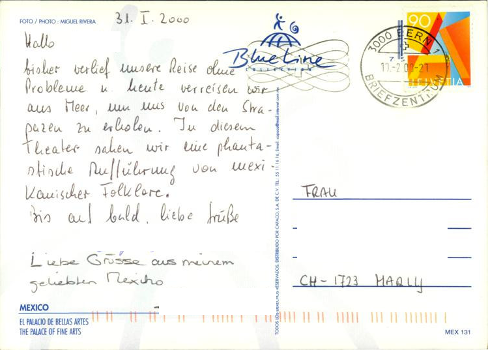 FOTO / PHOTO : MIGUEL RIVERA
31. I. 2000
Hallo
bisher verlief unsere Reise ohne
Probleme u. heute verreisen wir
ans Meer, um uns von den Stra-
pazen zu erholen. In diesem
Theater sahen wir eine phanta-
stische Aufführung von mexi
kanischer Folklore.
Bis auf bald, liebe Grüße
Liebe Grüsse aus meinem
geliebten Mexico
MEXICO
EL PALACIO DE BELLAS ARTES
THE PALACE OF FINE ARTS
Blue Line
3000 BERN 1
BRIEFZENTRUM
90
HELVETIA
FRAU
CH-1723 MARLY
MEX 131